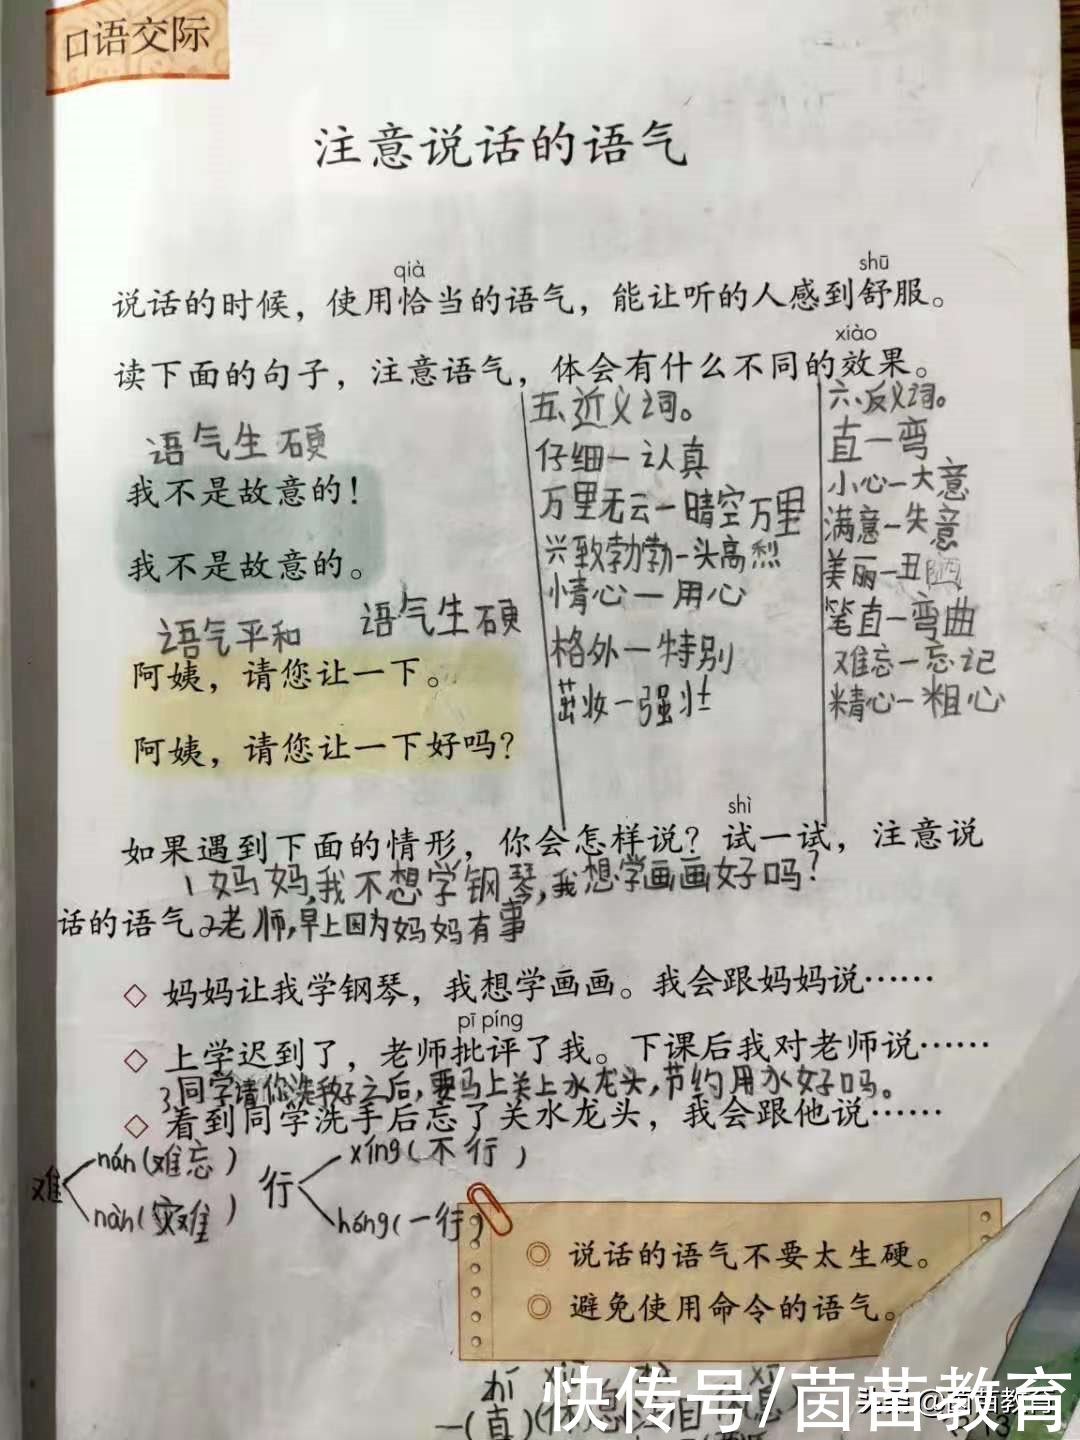 口语交际
注意说话的语气
qià shū
说话的时候，使用恰当的语气，能让听的人感到舒服。
xiào
读下面的句子，注意语气，体会有什么不同的效果。
语气生硬
我不是故意的！
我不是故意的。
语气平和 语气生硬
阿姨，请您让一下。
阿姨，请您让一下好吗？
五、近义词。
仔细－认真
万里无云－晴空万里
兴致勃勃－头高烈
情心－用心
格外－特别
茁妆－强壮
六、反义词。
直－弯
小心－大意
满意－失意
美丽－丑陋
笔直－弯曲
难忘－忘记
精心－粗心
shì
如果遇到下面的情形，你会怎样说？试一试，注意说
1妈妈,我不想学钢琴,我想学画画好吗？
话的语气
2老师,早上因为妈妈有事
◇ 妈妈让我学钢琴，我想学画画。我会跟妈妈说……
pī píng
◇ 上学迟到了，老师批评了我。下课后我对老师说……
3同学请你洗好之后,要马上关上水龙头,节约用水好吗。
◇ 看到同学洗手后忘了关水龙头，我会跟他说……
难 nán(难忘) nàn(灾难)
行 xíng(不行) háng(一行)
◎ 说话的语气不要太生硬。
◎ 避免使用命令的语气。
快传号/茵苗教育
头条 @茵苗教育